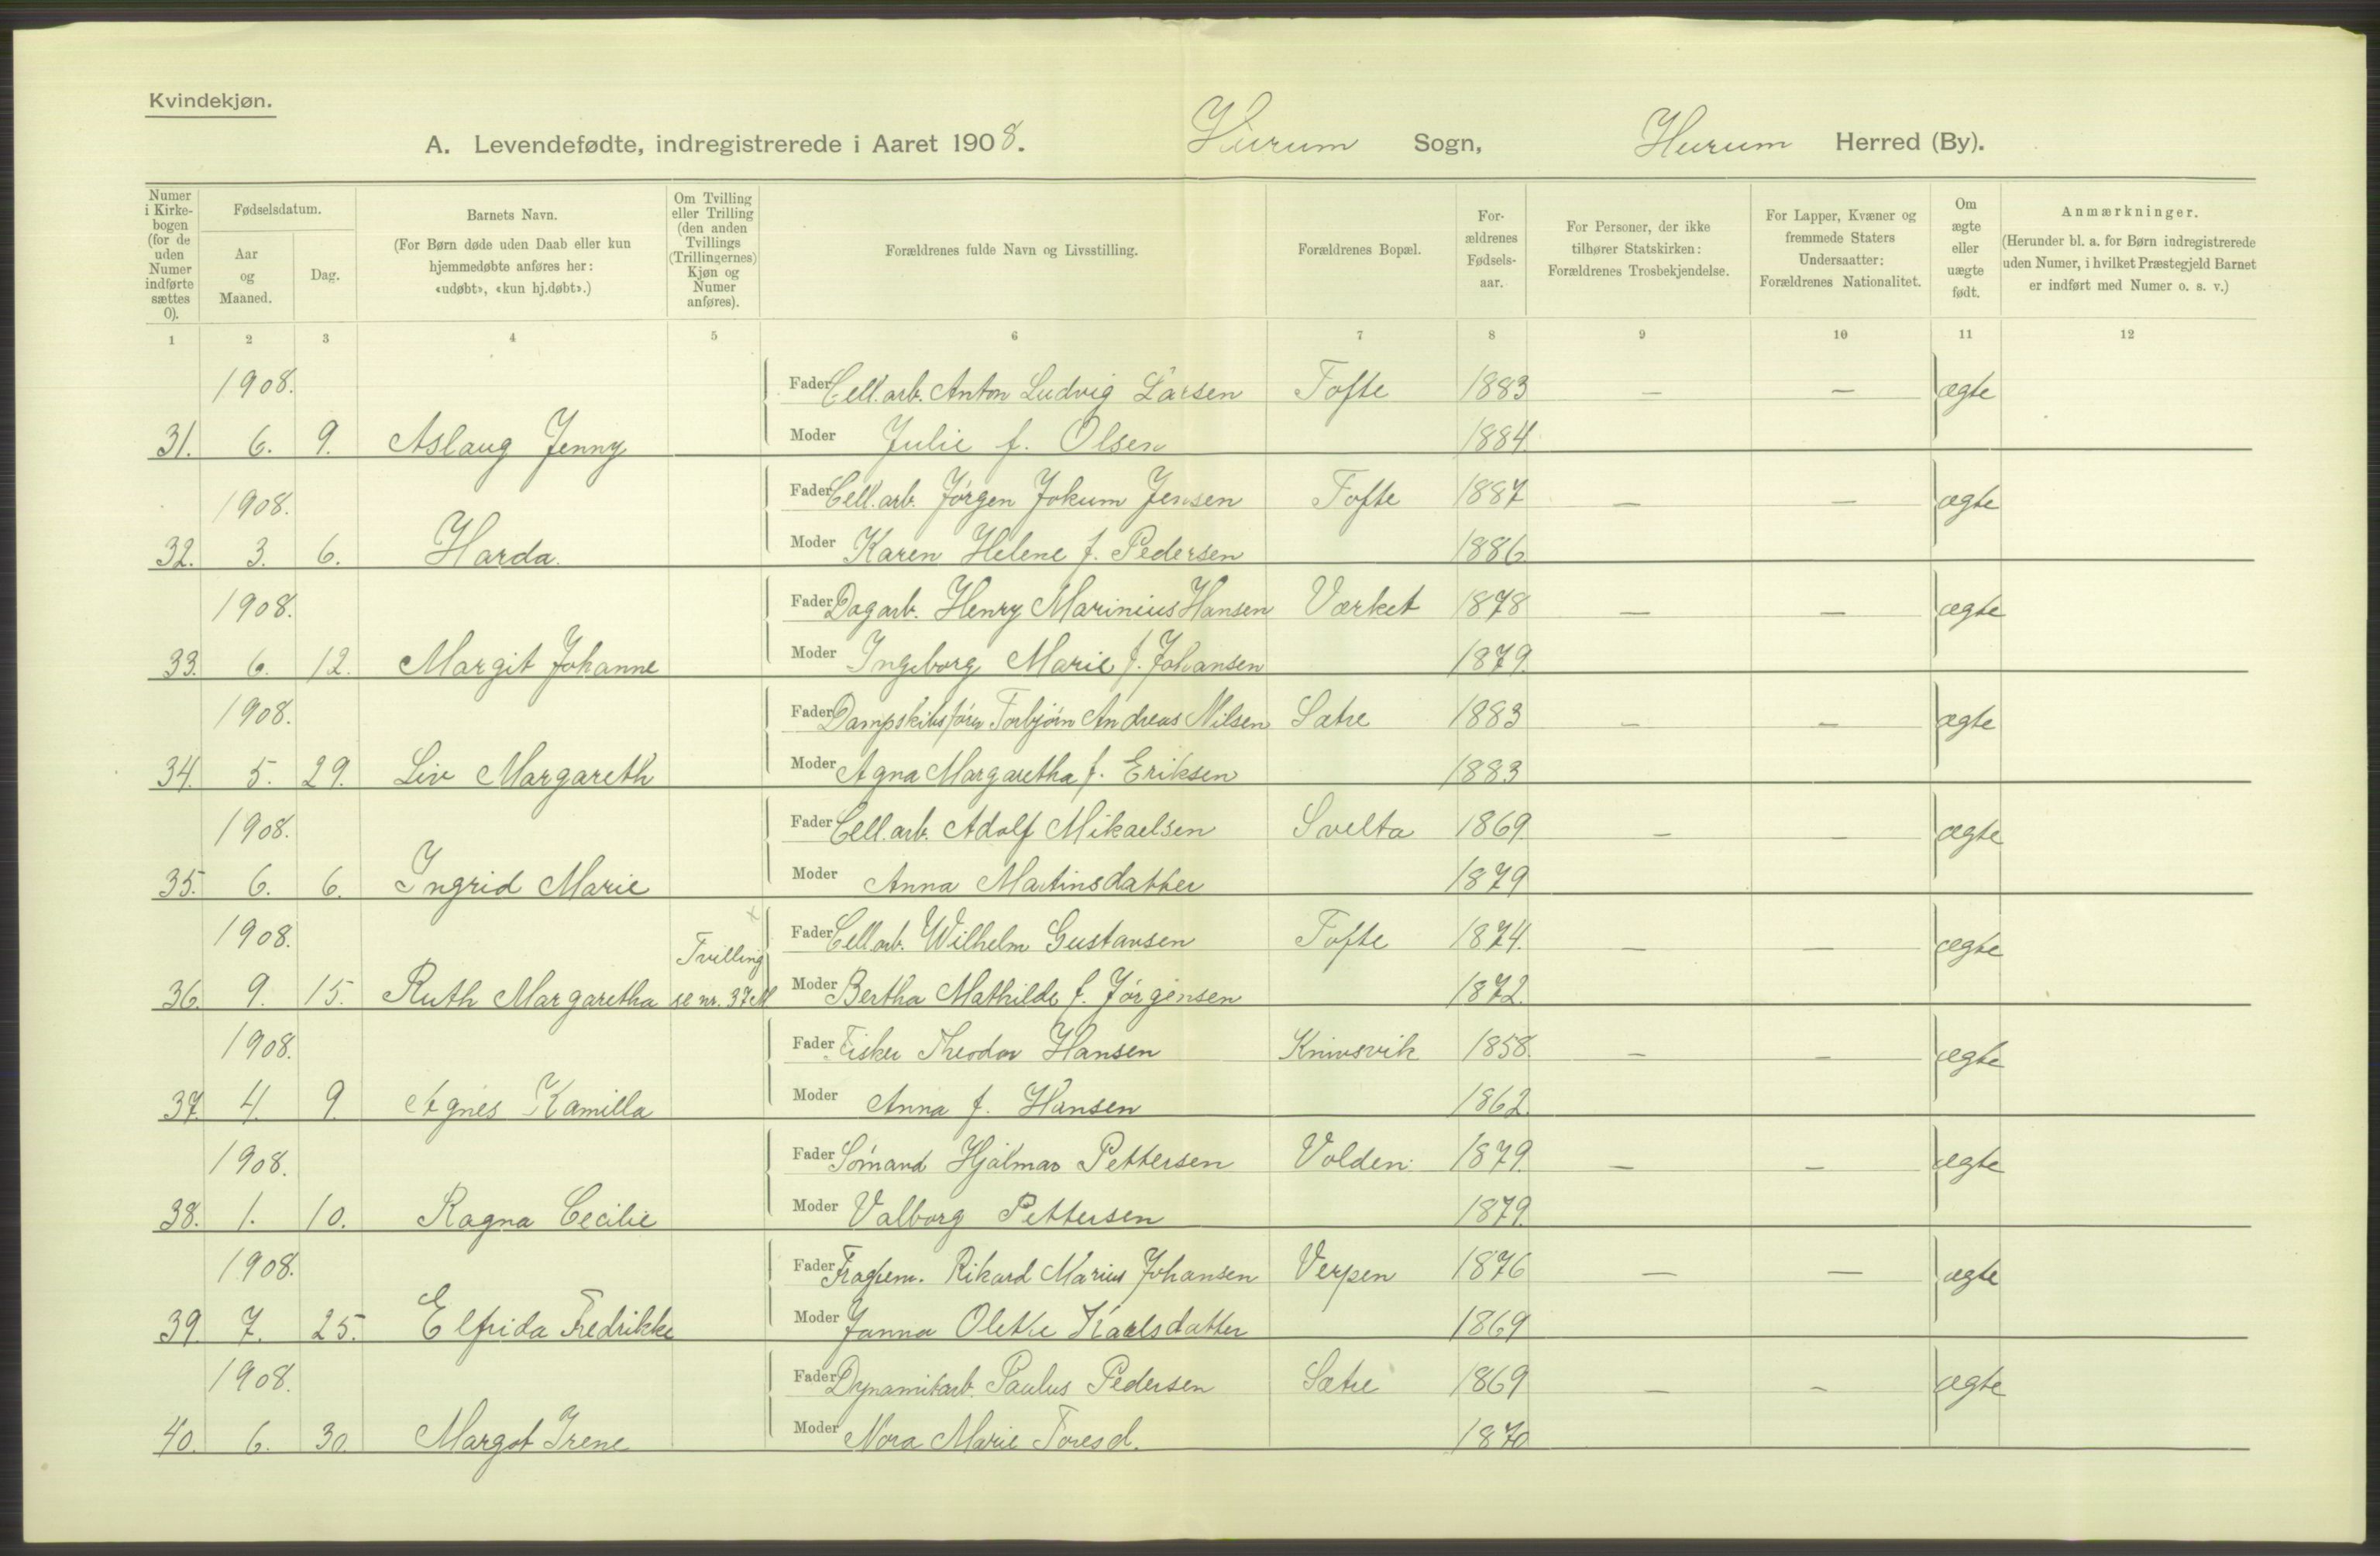 Kvindekjøn.
A. Levendefødte, indregistrerede i Aaret 1908. Hurum Sogn, Hurum Herred (By).
Numer i Kirkebogen (for de uden Numer indførte sættes 0).
Fødselsdatum.
Aar og Maaned.
Dag.
Barnets Navn.
(For Børn døde uden Daab eller kun hjemmedøbte anføres her: «udøbt», «kun hj.døbt».)
Om Tvilling eller Trilling (den anden Tvillings (Trillingernes) Kjøn og Numer anføres).
Forældrenes fulde Navn og Livsstilling.
Forældrenes Bopæl.
Forældrenes Fødselsaar.
For Personer, der ikke tilhører Statskirken: Forældrenes Trosbekjendelse.
For Lapper, Kvæner og fremmede Staters Undersaatter: Forældrenes Nationalitet.
Om ægte eller uægte født.
Anmærkninger.
(Herunder bl. a. for Børn indregistrerede uden Numer, i hvilket Præstegjeld Barnet er indført med Numer o. s. v.)
1 2 3 4 5 6 7 8 9 10 11 12
1908. Fader Cell. arb. Anton Ludvig Larsen Tofte 1883 — — ægte
31. 6. 9. Aslaug Jenny Moder Julie f. Olsen 1884.
1908. Fader Cell. arb. Jørgen Jokum Jensen Tofte 1887 — — ægte
32. 3. 6. Harda. Moder Karen Helene f. Pedersen 1886
1908. Fader Dagarb. Henry Marinius Hansen Værket 1878 — — ægte
33. 6. 12. Margit Johanne Moder Ingeborg Marie f. Johansen 1879.
1908. Fader Dampskibsfører Torbjørn Andreas Nilsen Sætre 1883 — — ægte
34. 5. 29. Liv Margareth Moder Agna Margaretha f. Eriksen 1883
1908. Fader Cell. arb. Adolf Mikaelsen Svelta 1869. — — ægte
35. 6. 6. Ingrid Marie Moder Anna Martinsdatter 1879
1908. Tvilling Fader Cell arb. Wilhelm Gustavsen Tofte 1874. — — ægte
36. 9. 15. Ruth Margaretha se nr. 37 M Moder Bertha Mathilde f. Jørgensen 1872.
1908. Fader Fisker Theodor Hansen Knivsvik 1858. — — ægte
37. 4. 9. Agnes Kamilla Moder Anna f. Hansen 1862.
1908. Fader Sømand Hjalmar Pettersen Volden. 1879. — — ægte
38. 1. 10. Ragna Cecilie Moder Valborg Pettersen 1879.
1908. Fader Fragtem. Rikard Marius Johansen Verpen 1876 — — ægte
39. 7. 25. Elfrida Fredrikke Moder Janna Olette Karlsdatter 1869
1908. Fader Dynamitarb. Paulus Pedersen Sætre 1869 — — ægte
40. 6. 30. Margot Irene Moder Nora Marie Toresd. 1870